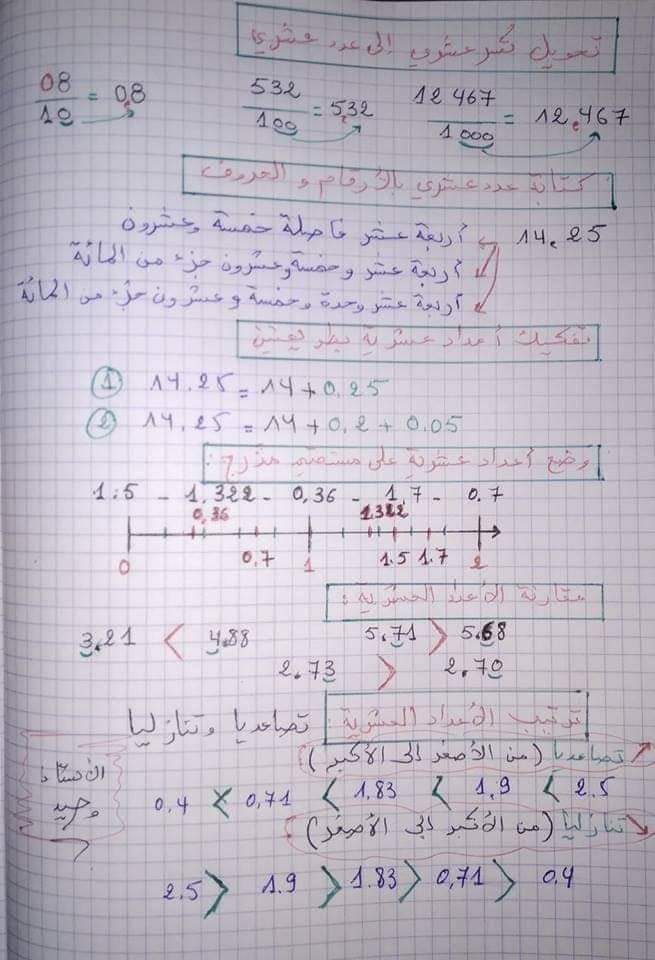 تحويل كسر عشري إلى عدد عشري
08/10 = 0,8 532/100 = 5,32 12 467/1000 = 12.467
كتابة عدد عشري بالأرقام و الحروف
14.25 أربعة عشر فاصلة خمسة وعشرون
أربعة عشر وخمسة وعشرون جزء من المائة
أربعة عشر وحدة وخمسة وعشرون جزء من المائة
تفكيك أعداد عشرية بطريقتين
① 14.25 = 14 + 0,25
② 14.25 = 14 + 0,2 + 0.05
وضع أعداد عشرية على مستقيم مدرج :
1.5 - 1.322 - 0,36 - 1,7 - 0.7
0,36 1.322
0 0.7 1 1.5 1.7 2
مقارنة الأعداد العشرية :
3.21 < 4.88 5.71 > 5.68
2.73 > 2.70
ترتيب الأعداد العشرية : تصاعديا وتنازليا
تصاعديا (من الأصغر إلى الأكبر)
0.4 < 0,71 < 1,83 < 1.9 < 2.5
تنازليا (من الأكبر إلى الأصغر)
2.5 > 1.9 > 1.83 > 0,71 > 0.4
الأستاذ
وحيد